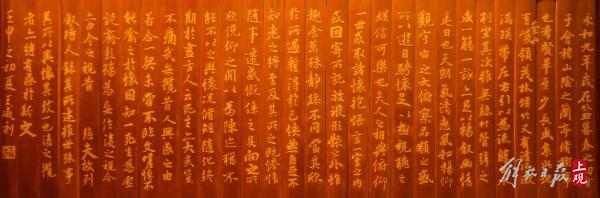 永和九年歲在癸丑暮春之初會
于會稽山陰之蘭亭脩禊事
也羣賢畢至少長咸集此地
有峻領茂林脩竹又有清流激
湍暎帶左右引以為流觴曲水
列坐其次雖無絲竹管弦之
盛一觴一詠亦足以暢敘幽情
是日也天朗氣清惠風和暢仰
觀宇宙之大俯察品類之盛
所以遊目騁懷足以極視聽之
娛信可樂也夫人之相與俯仰
一世或取諸懷抱悟言一室之內
或因寄所託放浪形骸之外雖
趣舍萬殊靜躁不同當其欣
於所遇暫得於己快然自足不
知老之將至及其所之既惓情
隨事遷感慨係之矣向之所
欣俛仰之閒以為陳迹猶不
能不以之興懷況脩短隨化終
期於盡古人云死生亦大矣豈
不痛哉每攬昔人興感之由
若合一契未嘗不臨文嗟悼不
能喻之於懷固知一死生為虛
誕齊彭殤為妄作後之視今
亦由今之視昔 悲夫故列
敘時人錄其所述雖世殊事
異所以興懷其致一也後之攬
者亦將有感於斯文
壬申之初夏王成利
解放日报 上观